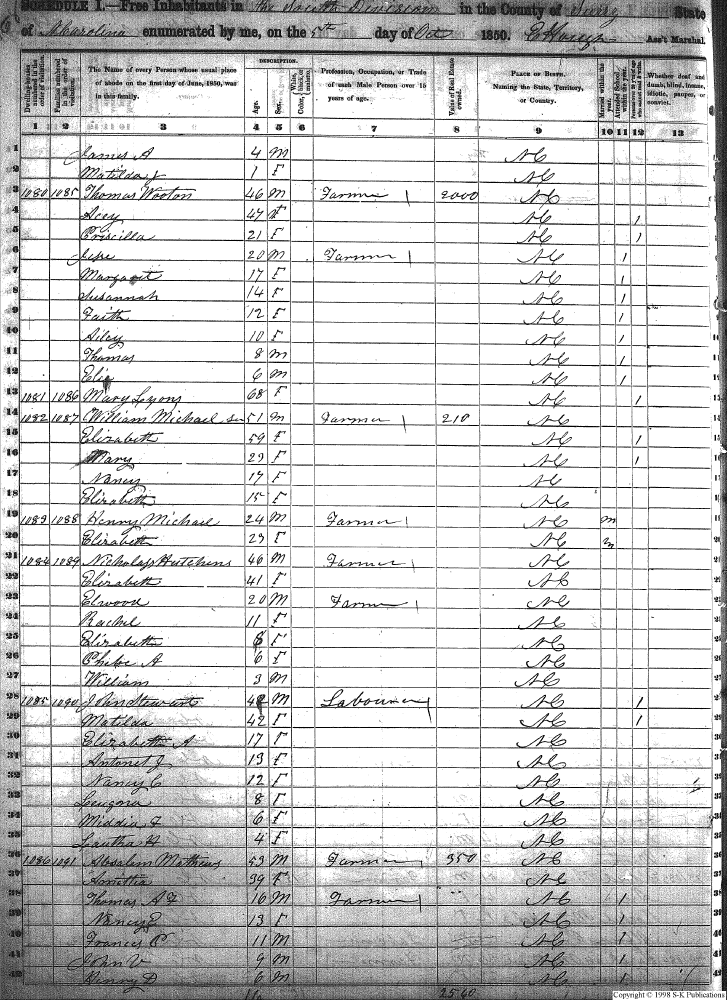 SCHEDULE I.—Free Inhabitants in the South Division in the County of Surry State
of N Carolina enumerated by me, on the 5th day of Oct 1850. Ass't Marshal.
DESCRIPTION.
Dwelling-houses numbered in the order of visitation.
Families numbered in the order of visitation.
The Name of every Person whose usual place of abode on the first day of June, 1850, was in this family.
Age.
Sex.
White, Color, black or mulatto.
Profession, Occupation, or Trade of each Male Person over 15 years of age.
Value of Real Estate owned.
PLACE OF BIRTH. Naming the State, Territory, or Country.
Married within the year.
Attended School within the year.
Whether deaf and dumb, blind, insane, idiotic, pauper, or convict.
1 2 3 4 5 6 7 8 9 10 11 12 13
1 James A 4 M NC
2 Matilda J 1 F NC
3 1080 1085 Thomas Wooton 46 M Farmer 2000 NC
4 Acey 47 F NC 1
5 Priscilla 21 F NC 1
6 20 M Farmer NC 1
7 Margaret 17 F NC 1
8 Susannah 14 F NC 1
9 Faith 12 F NC 1
10 Ailey 10 F NC 1
11 Thomas 8 M NC 1
12 Eli 6 M NC 1
13 1081 1086 Mary Lyons 68 F NC 1
14 1082 1087 William Michael 51 M Farmer 210 NC
15 Elizabeth 59 F NC 1
16 Mary 23 F NC 1
17 Nancy 17 F NC
18 Elizabeth 15 F NC
19 1083 1088 Henry Michael 24 M Farmer NC m
20 Elizabeth 23 F NC m
21 1084 1089 Nicholas Hutchens 46 M Farmer NC
22 Elizabeth 41 F NC
23 Elwood 20 M Farmer NC
24 Rachel 11 F NC
25 Elizabeth 8 F NC
26 Phebe A 6 F NC
27 William 3 M NC
28 1085 1090 John Stewart M Labourer NC 1
29 Matilda 42 F NC 1
30 Elizabeth A 17 F NC
31 Antonet J 13 F NC
32 Nancy C 12 F NC
33 8 F NC
34 6 F NC
35 4 F NC
36 1086 1091 Absalem Mathews 53 M Farmer 350 NC
37 39 F NC
38 Thomas A F 16 M Farmer NC 1
39 Nancy E 13 F NC 1
40 Francis P 11 M NC 1
41 John V 9 M NC 1
42 Henry D 6 M NC 1
2560
Copyright © 1998 S-K Publications